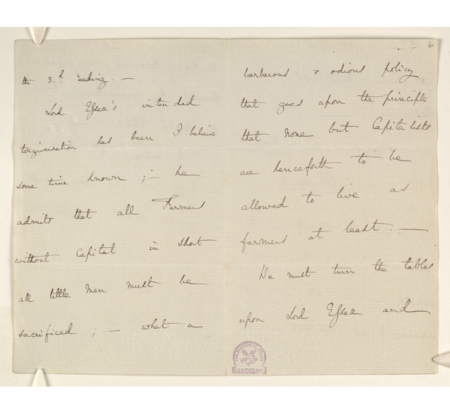 the 3.d reading. —
Lord Essex's intended
tergiversation has been I believe
some time known ; — he
admits that all Farmers
without Capital in short
all little Men must be
sacrificed ; — what a
barbarous & odious policy
that goes upon the principle
that None but Capitalists
are henceforth to be
allowed to live as
farmers at least. —
We must turn the tables
upon Lord Essex and